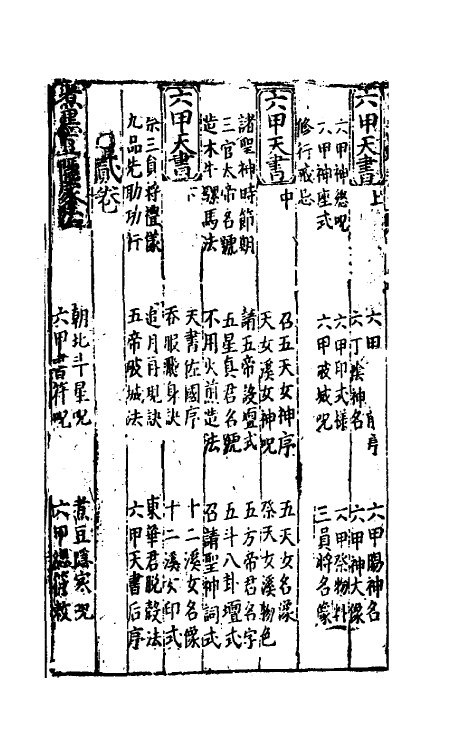 六甲天書上
六甲 盲序 六甲陽神名
六甲神總呪 六丁陰神名 六甲神大像
六甲神座式 六甲印式樣 六甲祭物料
修行戒忌 六甲破城呪 三員將名像
六甲天書中
召五天女神序 五天女名像
天女溪女神呪 祭天女溪物色
諸聖神時節朝 請五帝設壇式 五方帝君名字
三官大帝名號 五星真君名號 五斗八卦壇式
造木牛騾馬法 不用火煎造法 召請聖神詞式
六甲天書下
天書佐國序 十二溪女名像
吞服飛身訣 十二溪女印式
祭三員將禮儀 追月再現訣 東華君脫殼法
九品先助功行 五帝破城法 六甲天書后序
貳卷
朝北斗星呪 煮豆隱寒呪
六甲書符呪 六甲總符敕